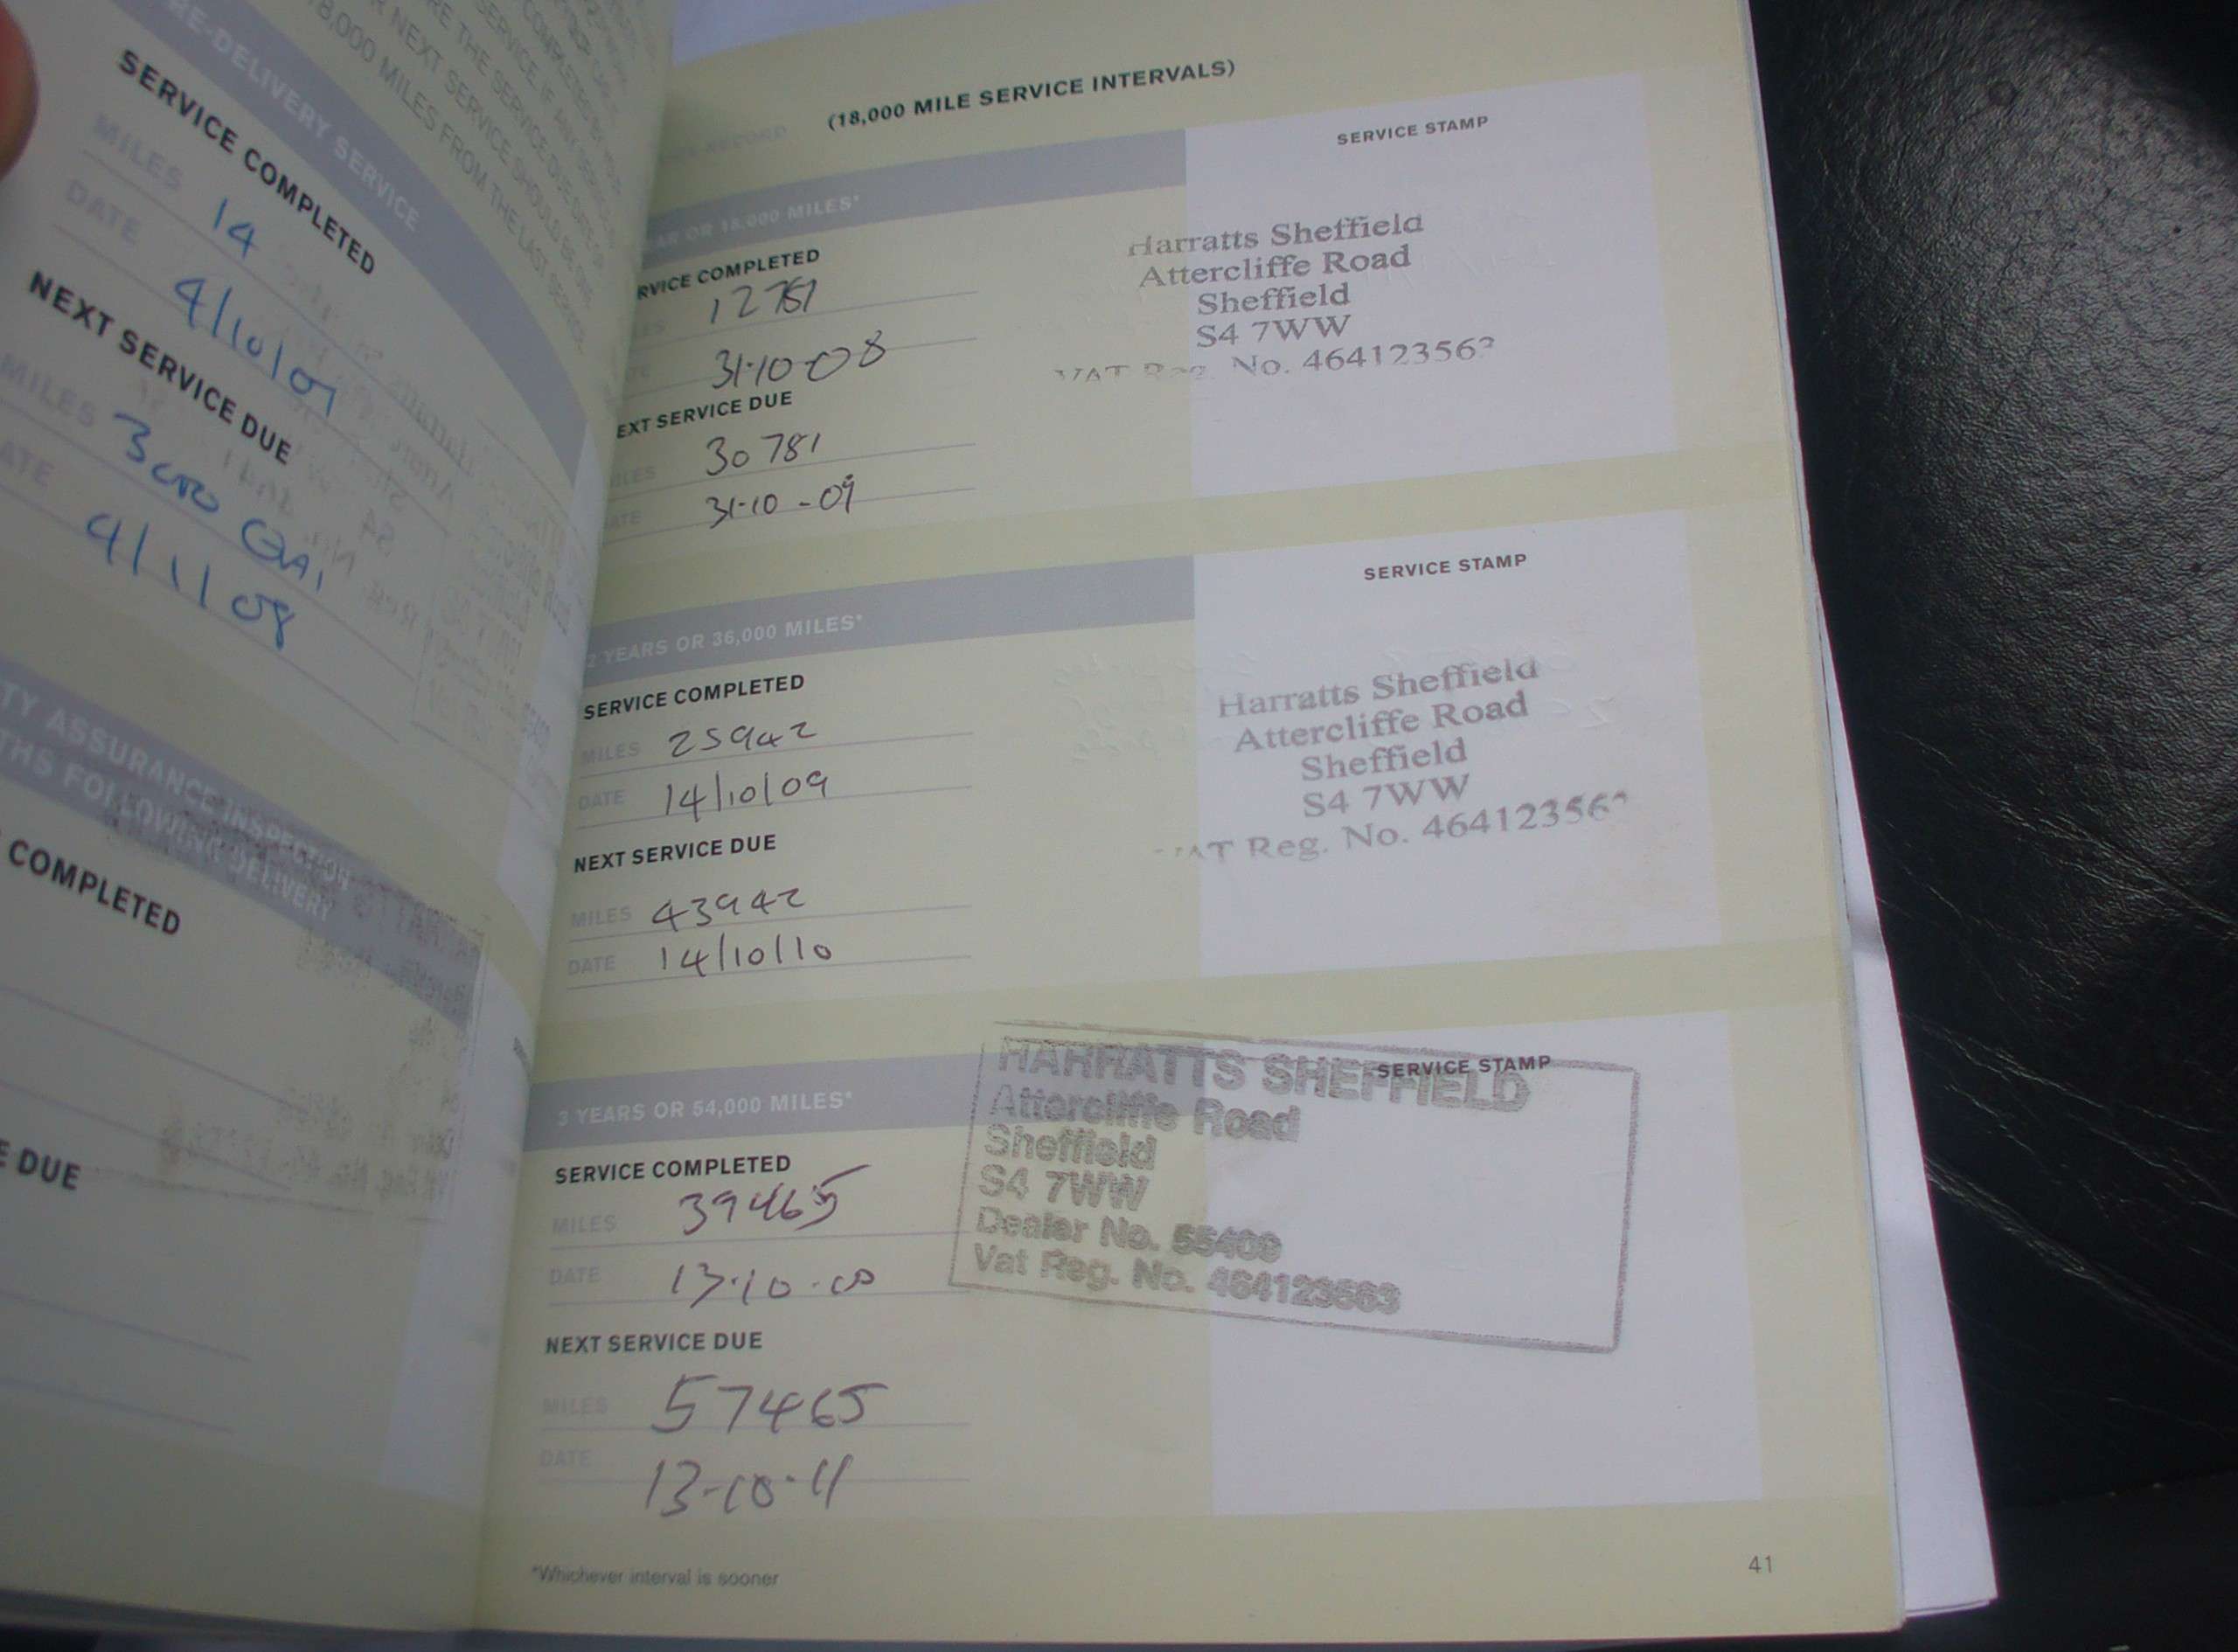 RE-DELIVERY SERVICE
SERVICE COMPLETED
MILES 14
DATE 4/10/07
NEXT SERVICE DUE
MILES 3000
ATE 4/1/08
TY ASSURANCE INSPECTION
THS FOLLOWING DELIVERY
COMPLETED
E DUE
COMPLETED BY YOUR
SERVICE IF ANY
RE THE SERVICE DUE DATE OR
NEXT SERVICE SHOULD BE
18,000 MILES FROM THE LAST SERVICE
RECORD (18,000 MILE SERVICE INTERVALS)
AR OR 18,000 MILES*
SERVICE STAMP
RVICE COMPLETED
12781
31·10·08
EXT SERVICE DUE
ILES 30781
ATE 31-10-09
Harratts Sheffield
Attercliffe Road
Sheffield
S4 7WW
VAT Reg. No. 464123563
2 YEARS OR 36,000 MILES*
SERVICE STAMP
SERVICE COMPLETED
MILES 25942
DATE 14/10/09
NEXT SERVICE DUE
MILES 43942
DATE 14/10/10
Harratts Sheffield
Attercliffe Road
Sheffield
S4 7WW
VAT Reg. No. 46412356
3 YEARS OR 54,000 MILES*
SERVICE STAMP
SERVICE COMPLETED
MILES 39465
DATE 13·10·
NEXT SERVICE DUE
MILES 57465
DATE 13-10-11
HARRATTS SHEFFIELD
Attercliffe Road
Sheffield
S4 7WW
Dealer No. 55409
Vat Reg. No. 464123563
*Whichever interval is sooner
41